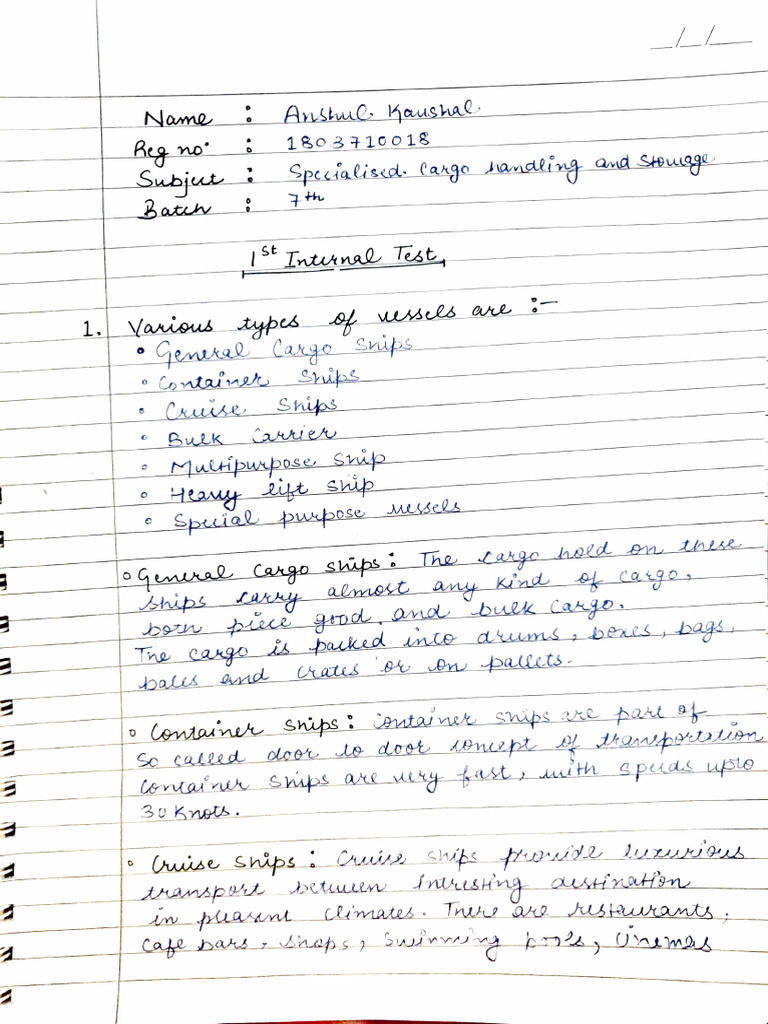 __/__/____
Name : Anshul Kaushal
Reg no. : 1803710018
Subject : Specialised. Cargo handling and Stowage
Batch : 7th
1st Internal Test
1. Various types of vessels are :-
• General Cargo Ships
• Container Ships
• Cruise Ships
• Bulk Carrier
• Multipurpose Ship
• Heavy lift Ship
• Special purpose vessels
• General Cargo Ships : The cargo hold on these
ships carry almost any kind of cargo,
both piece good and bulk cargo.
The cargo is packed into drums, boxes, bags,
bales and crates or on pallets.
• Container Ships : Container ships are part of
So called door to door concept of transportation
Container ships are very fast, with speeds upto
30 Knots.
• Cruise Ships : Cruise ships provide luxurious
transport between intresting destination
in pleasent climates. There are restaurants,
Cafe bars, shops, Swimming pools, Cinemas